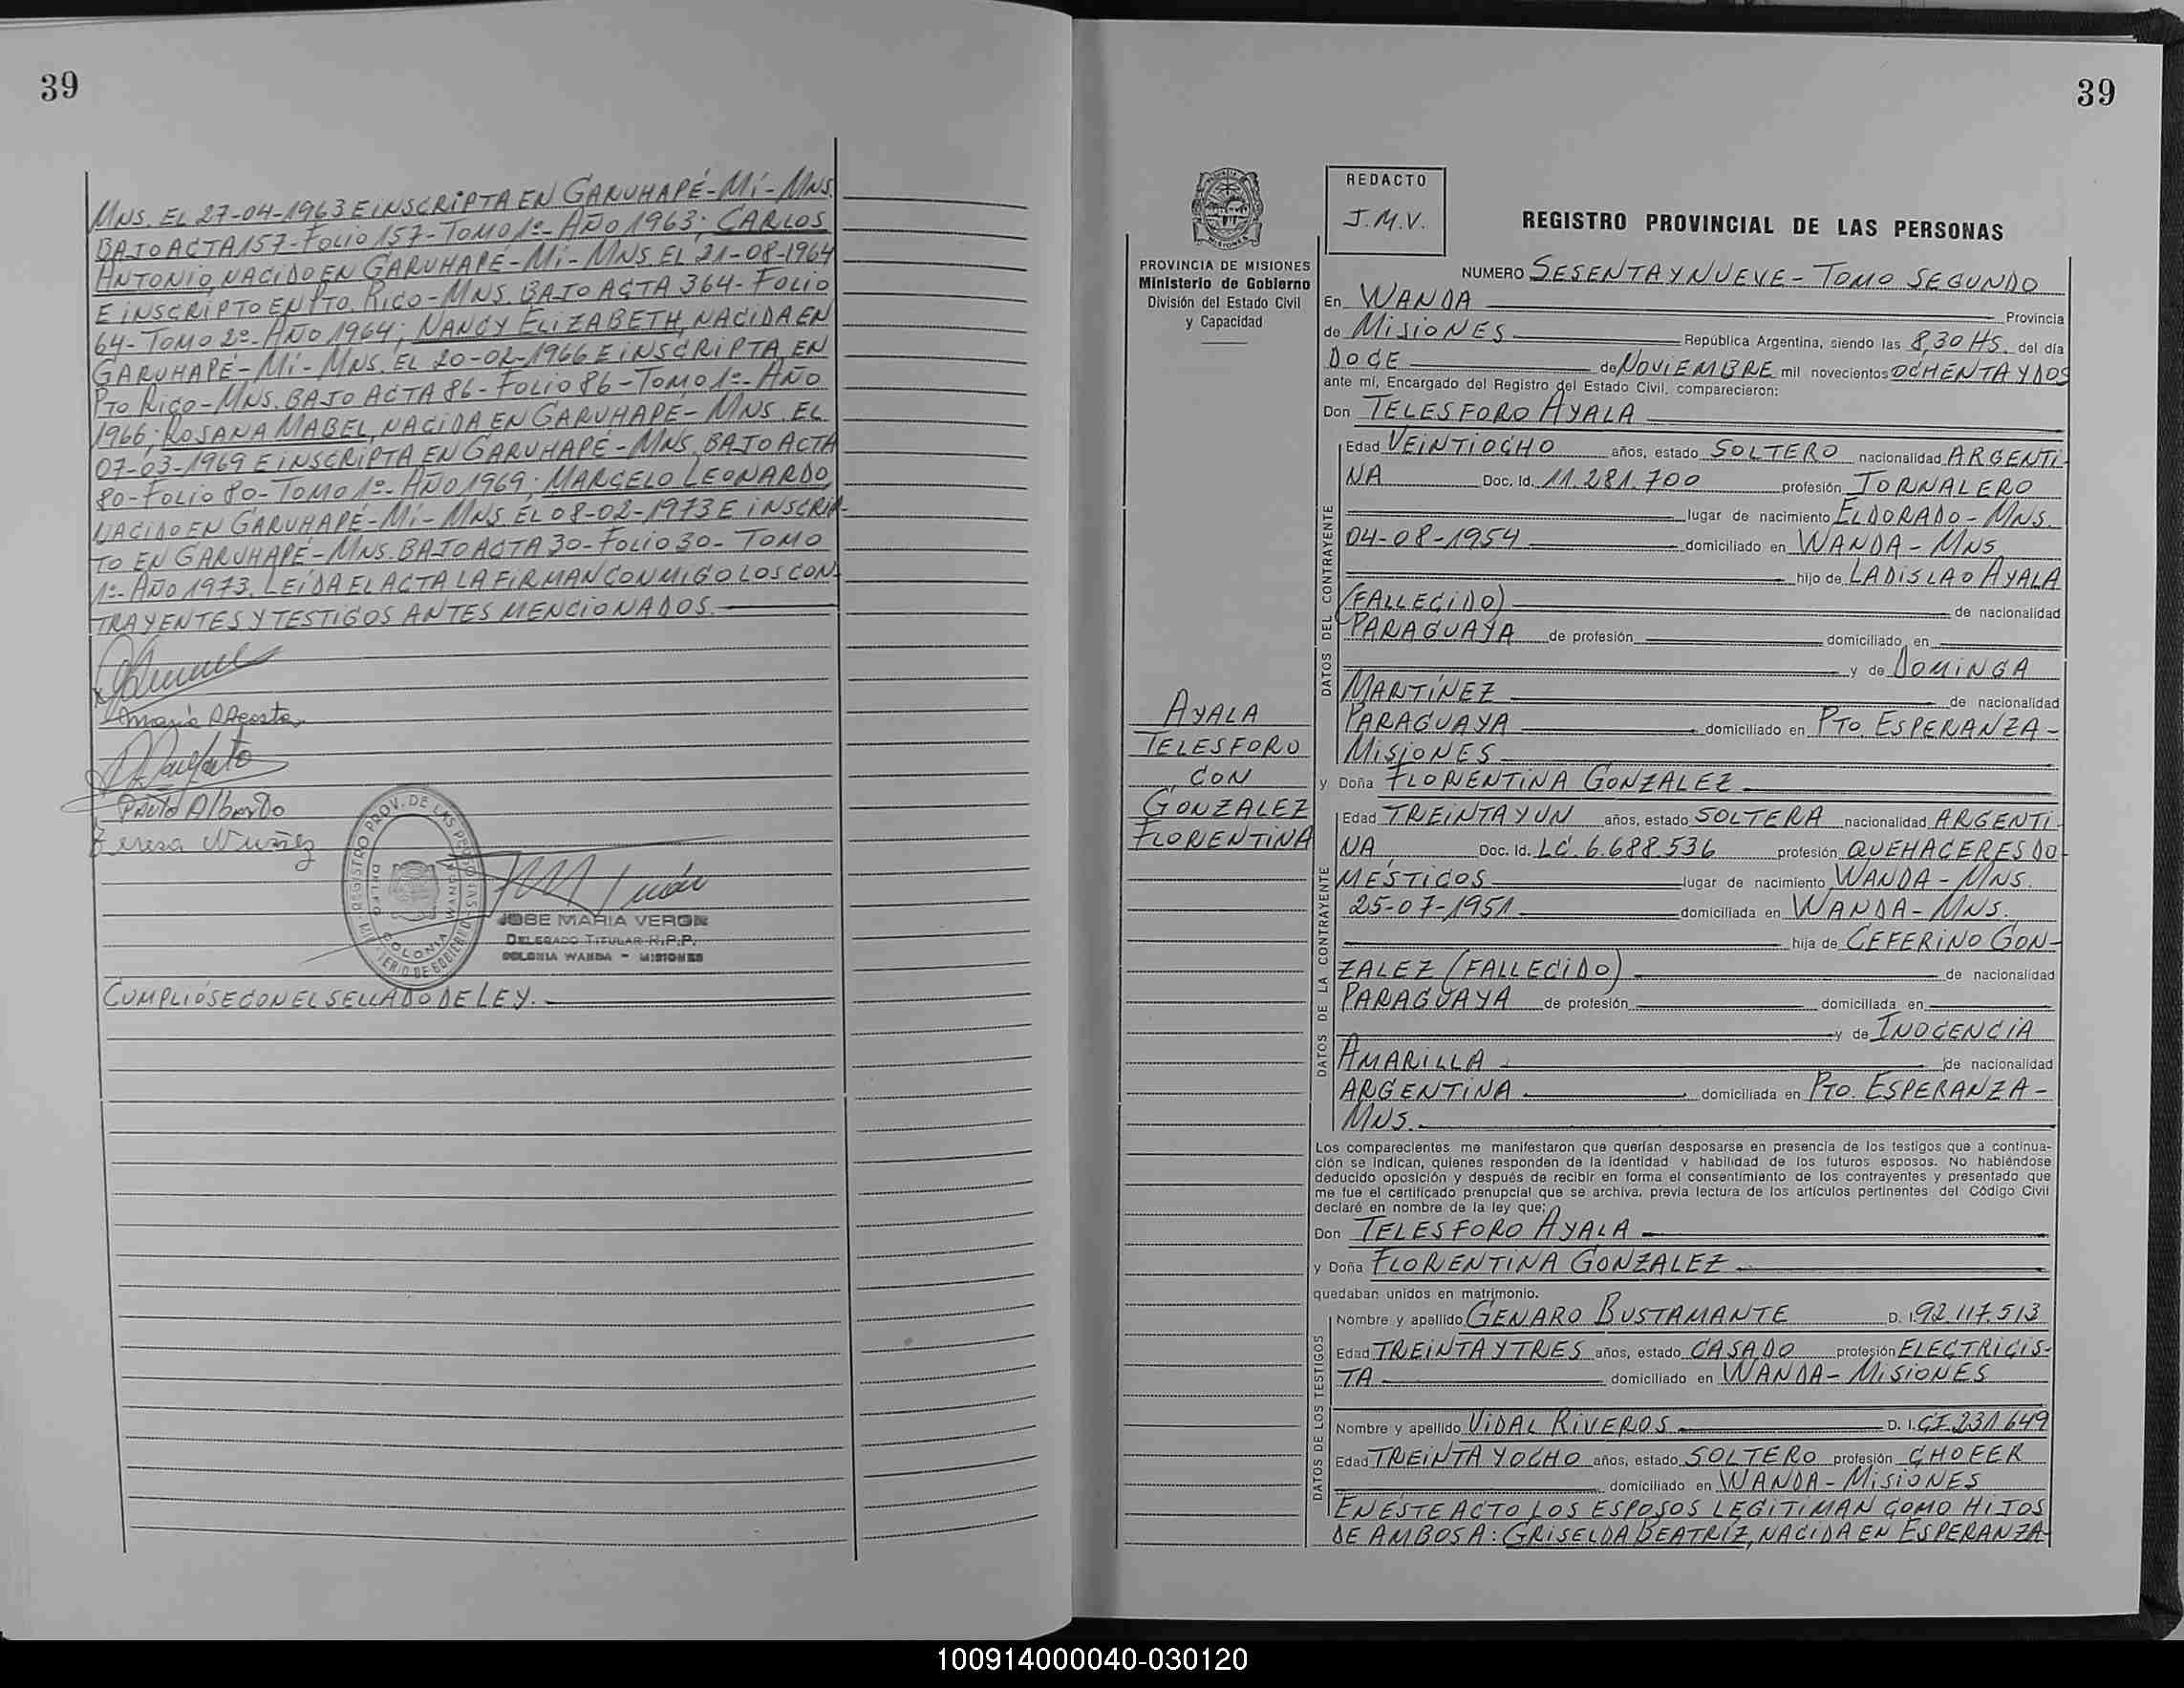 39
MNS. EL 27-04-1963 E INSCRIPTA EN GARUHAPÉ-MÍ-MNS.
BAJO ACTA 157-FOLIO 157-TOMO 1º-AÑO 1963; CARLOS
ANTONIO, NACIDO EN GARUHAPÉ-MÍ-MNS. EL 21-08-1964
E INSCRIPTO EN PTO. RICO-MNS. BAJO ACTA 364-FOLIO
64-TOMO 2º-AÑO 1964; NANCY ELIZABETH, NACIDA EN
GARUHAPÉ-MÍ-MNS. EL 20-02-1966 E INSCRIPTA EN
PTO RICO-MNS. BAJO ACTA 86-FOLIO 86-TOMO 1º-AÑO
1966; ROSANA MABEL, NACIDA EN GARUHAPÉ-MNS. EL
07-03-1969 E INSCRIPTA EN GARUHAPÉ-MNS. BAJO ACTA
80-FOLIO 80-TOMO 1º-AÑO 1969; MARCELO LEONARDO,
NACIDO EN GARUHAPÉ-MÍ-MNS. EL 08-02-1973 E INSCRIP-
TO EN GARUHAPÉ-MNS. BAJO ACTA 30-FOLIO 30-TOMO
1º-AÑO 1973. LEÍDA EL ACTA LA FIRMAN CONMIGO LOS CON-
TRAYENTES Y TESTIGOS ANTES MENCIONADOS.
Maria R Acosta
Pinto Alberto
Teresa Nuñez
REGISTRO PROV. DE LAS PERSONAS
COLONIA WANDA
JOSE MARIA VERON
DELEGADO TITULAR R.P.P.
COLONIA WANDA - MISIONES
CUMPLIÓSE CON EL SELLADO DE LEY.
39
PROVINCIA DE MISIONES
Ministerio de Gobierno
División del Estado Civil
y Capacidad
REDACTO
J.M.V.
REGISTRO PROVINCIAL DE LAS PERSONAS
AYALA
TELESFORO
CON
GONZALEZ
FLORENTINA
NUMERO SESENTA Y NUEVE-TOMO SEGUNDO
En WANDA Provincia
de MISIONES República Argentina, siendo las 8,30 HS. del día
DOCE de NOVIEMBRE mil novecientos OCHENTA Y DOS
ante mí, Encargado del Registro del Estado Civil, comparecieron:
Don TELESFORO AYALA
DATOS DEL CONTRAYENTE
Edad VEINTIOCHO años, estado SOLTERO nacionalidad ARGENTI-
NA Doc. Id. 11.281.700 profesión JORNALERO
lugar de nacimiento ELDORADO-MNS.
04-08-1954 domiciliado en WANDA-MNS
hijo de LADISLAO AYALA
(FALLECIDO) de nacionalidad
PARAGUAYA de profesión domiciliado en
y de DOMINGA
MARTÍNEZ de nacionalidad
PARAGUAYA domiciliado en PTO. ESPERANZA-
MISIONES
y Doña FLORENTINA GONZALEZ
DATOS DE LA CONTRAYENTE
Edad TREINTA Y UN años, estado SOLTERA nacionalidad ARGENTI-
NA Doc. Id. LC. 6.688.536 profesión QUEHACERES DO-
MÉSTICOS lugar de nacimiento WANDA-MNS.
25-07-1951 domiciliada en WANDA-MNS.
hija de CEFERINO GON-
ZALEZ (FALLECIDO) de nacionalidad
PARAGUAYA de profesión domiciliada en
y de INOCENCIA
AMARILLA de nacionalidad
ARGENTINA domiciliada en PTO. ESPERANZA-
MNS.
Los comparecientes me manifestaron que querían desposarse en presencia de los testigos que a continua-
ción se indican, quienes responden de la identidad y habilidad de los futuros esposos. No habiéndose
deducido oposición y después de recibir en forma el consentimiento de los contrayentes y presentado que
me fue el certificado prenupcial que se archiva, previa lectura de los artículos pertinentes del Código Civil
declaré en nombre de la ley que:
Don TELESFORO AYALA
y Doña FLORENTINA GONZALEZ
quedaban unidos en matrimonio.
DATOS DE LOS TESTIGOS
Nombre y apellido GENARO BUSTAMANTE D. I. 92.117.513
Edad TREINTA Y TRES años, estado CASADO profesión ELECTRICIS-
TA domiciliado en WANDA-MISIONES
Nombre y apellido VIDAL RIVEROS D. I. CI. 231.649
Edad TREINTA Y OCHO años, estado SOLTERO profesión CHOFER
domiciliado en WANDA-MISIONES
EN ÉSTE ACTO LOS ESPOSOS LEGITIMAN COMO HIJOS
DE AMBOS A: GRISELDA BEATRÍZ, NACIDA EN ESPERANZA-
100914000040-030120